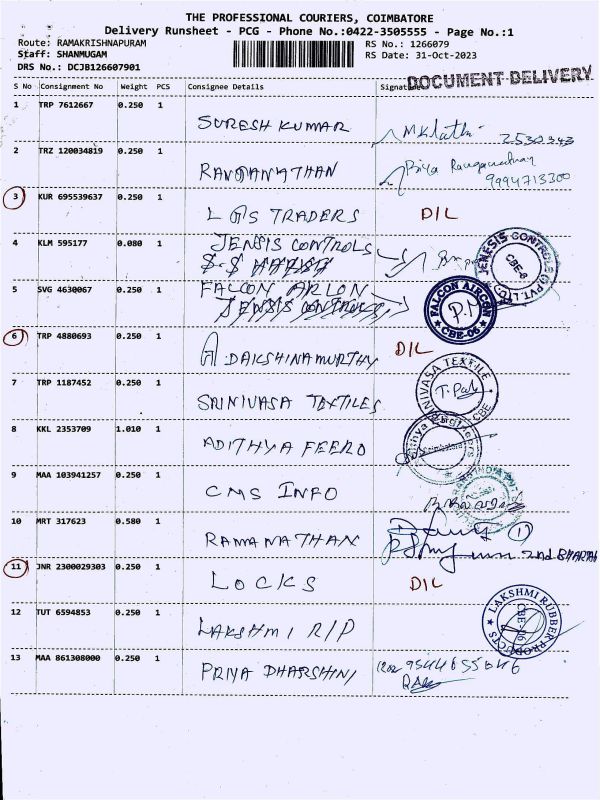 THE PROFESSIONAL COURIERS, COIMBATORE
Delivery Runsheet - PCG - Phone No.:0422-3505555 - Page No.:1
Route: RAMAKRISHNAPURAM RS No.: 1266079
Staff: SHANMUGAM RS Date: 31-Oct-2023
DRS No.: DCJB126607901
DOCUMENT DELIVERY
S No Consignment No Weight PCS Consignee Details Signature
1 TRP 7612667 0.250 1 SURESH KUMAR
2 TRZ 120034819 0.250 1 RANGANATHAN Priya Ranganathan
9994713300
3 KUR 695539637 0.250 1 LGS TRADERS D/L
4 KLM 595177 0.080 1 JENSIS CONTROLS
JENESIS CONTROLS (P) PVT. LTD CBE-6
5 SVG 4630067 0.250 1 FALCON ARLON
JENSIS CONTROLS
FALCON AIRCON CBE-06
6 TRP 4880693 0.250 1 G DAKSHINAMURTHY D/L
7 TRP 1187452 0.250 1 SRINIVASA TEXTILES
SRINIVASA TEXTILE CBE
8 KKL 2353709 1.010 1 ADITHYA FEERO
Coimbatore
9 MAA 103941257 0.250 1 CMS INFO
10 MRT 317623 0.580 1 RAMANATHAN
11 JNR 2300029303 0.250 1 LOCKS D/L
12 TUT 6594853 0.250 1 LAKSHMI R/P
LAKSHMI RUBBER PRODUCTS CBE-06
13 MAA 861308000 0.250 1 PRIYA DHARSHINI 9544655646